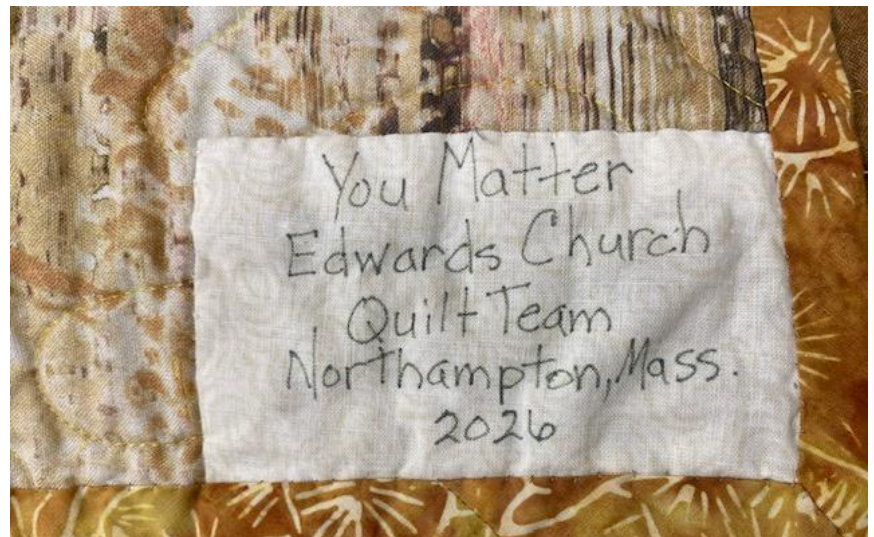 You Matter
Edwards Church
Quilt Team
Northampton, Mass.
2026